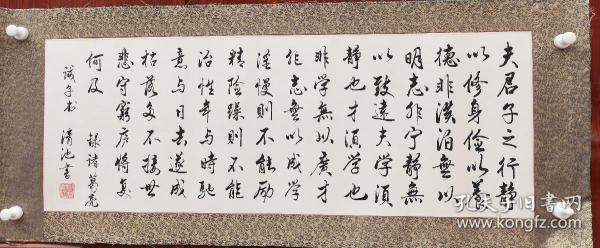 夫君子之行静
以修身俭以養
德非淡泊無以
明志非宁静無
以致遠夫学須
静也才須学也
非学無以廣才
非志無以成学
淫慢則不能励
精险躁則不能
治性年与時馳
意与日去遂成
枯落多不接世
悲守窮庐将复
何及 録诸葛亮
诫子书 清池書
孔夫子旧书网
kongfz.com